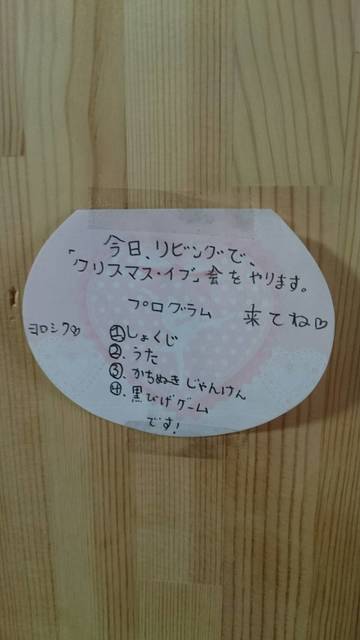 今日、リビングで、
「クリスマス・イブ」会をやります。
プログラム 来てね♡
ヨロシク♡
①しょくじ
②.うた
③.かちぬきじゃんけん
④.黒ひげゲーム
です!